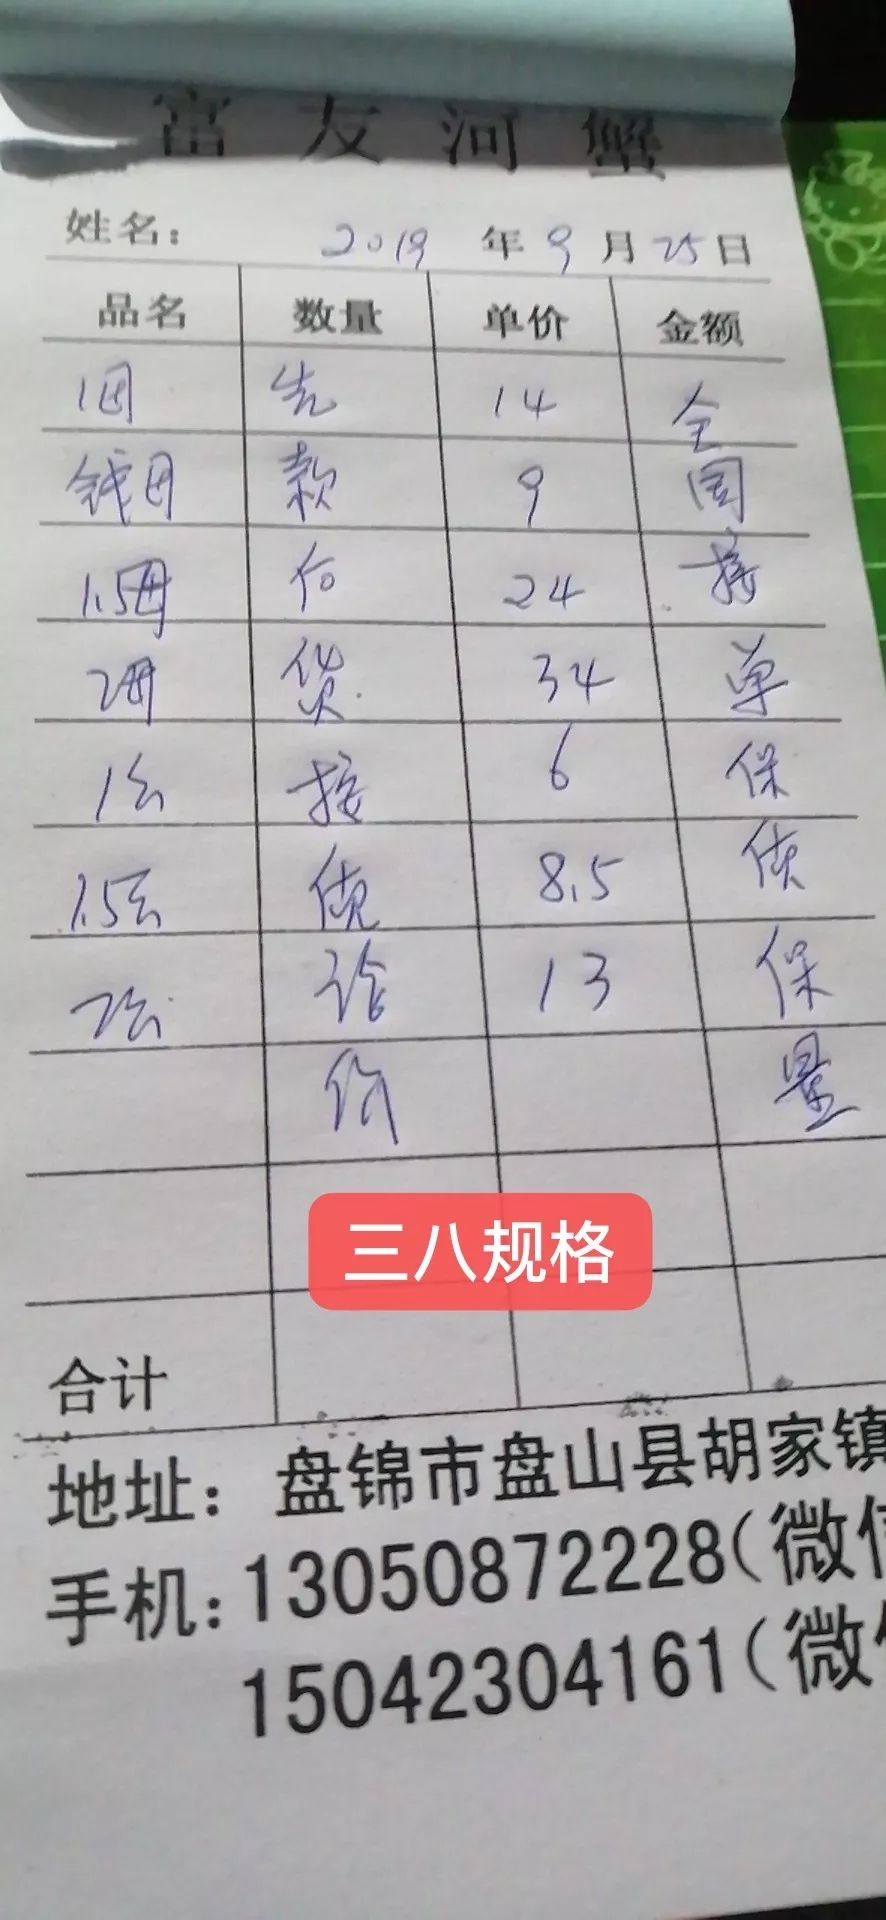 富友河蟹
姓名： 2019 年 9 月 25 日
品名 数量 单价 金额
1母 先 14 全
钱母 款 9 国
1.5母 后 24 接
2母 货 34 单
1公 接 6 保
1.5公 8.5 质
2公 论 13 保
价 量
三八规格
合计
地址：盘锦市盘山县胡家镇
手机：13050872228（微信
15042304161（微